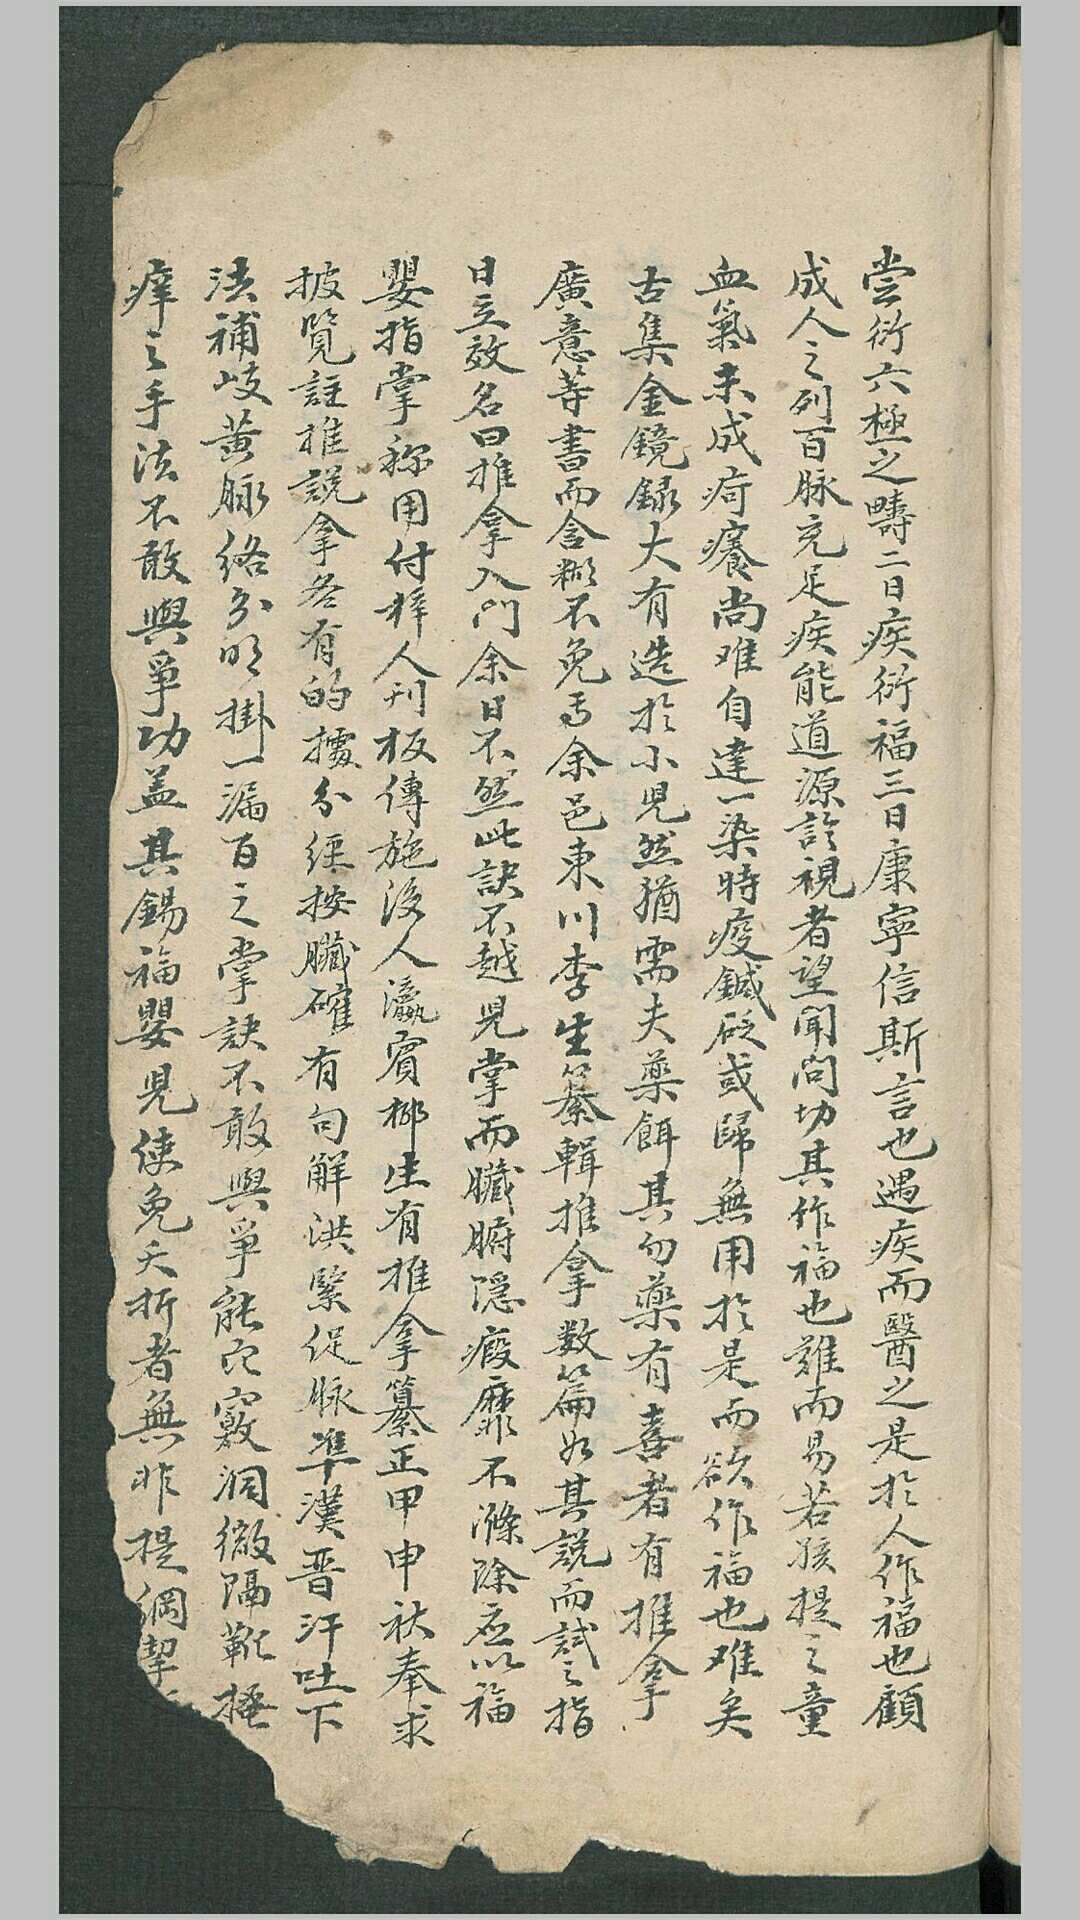 嘗衍六極之疇二曰疾衍福三曰康寧信斯言也遇疾而醫之是於人作福也顧
成人之列百脉充足疾能道源診視者望聞問切其作福也雖而易若孩提之童
血氣未成疴癢尚难自達一染時疫鍼砭或歸無用於是而欲作福也难矣
古集金鏡録大有造於小児然猶需夫藥餌其勿藥有喜者有推拿
廣意等書而含糊不免焉余邑東川李生纂輯推拿数篇如其説而試之指
日立效名曰推拿入門余曰不然此訣不越児掌而臓腑隠瘕靡不滌除应以福
嬰指掌称用付梓人刊板傳施後人瀛賓柳生有推拿纂正甲申秋奉求
披覧註推説拿各有的據分經按臓確有句解洪緊促脉準漢晋汗吐下
法補岐黄脉络分明掛一漏百之掌訣不敢與爭能穴竅洞微隔靴搔
痒之手法不敢與爭功盖其錫福嬰児使免夭折者無非提綱挈